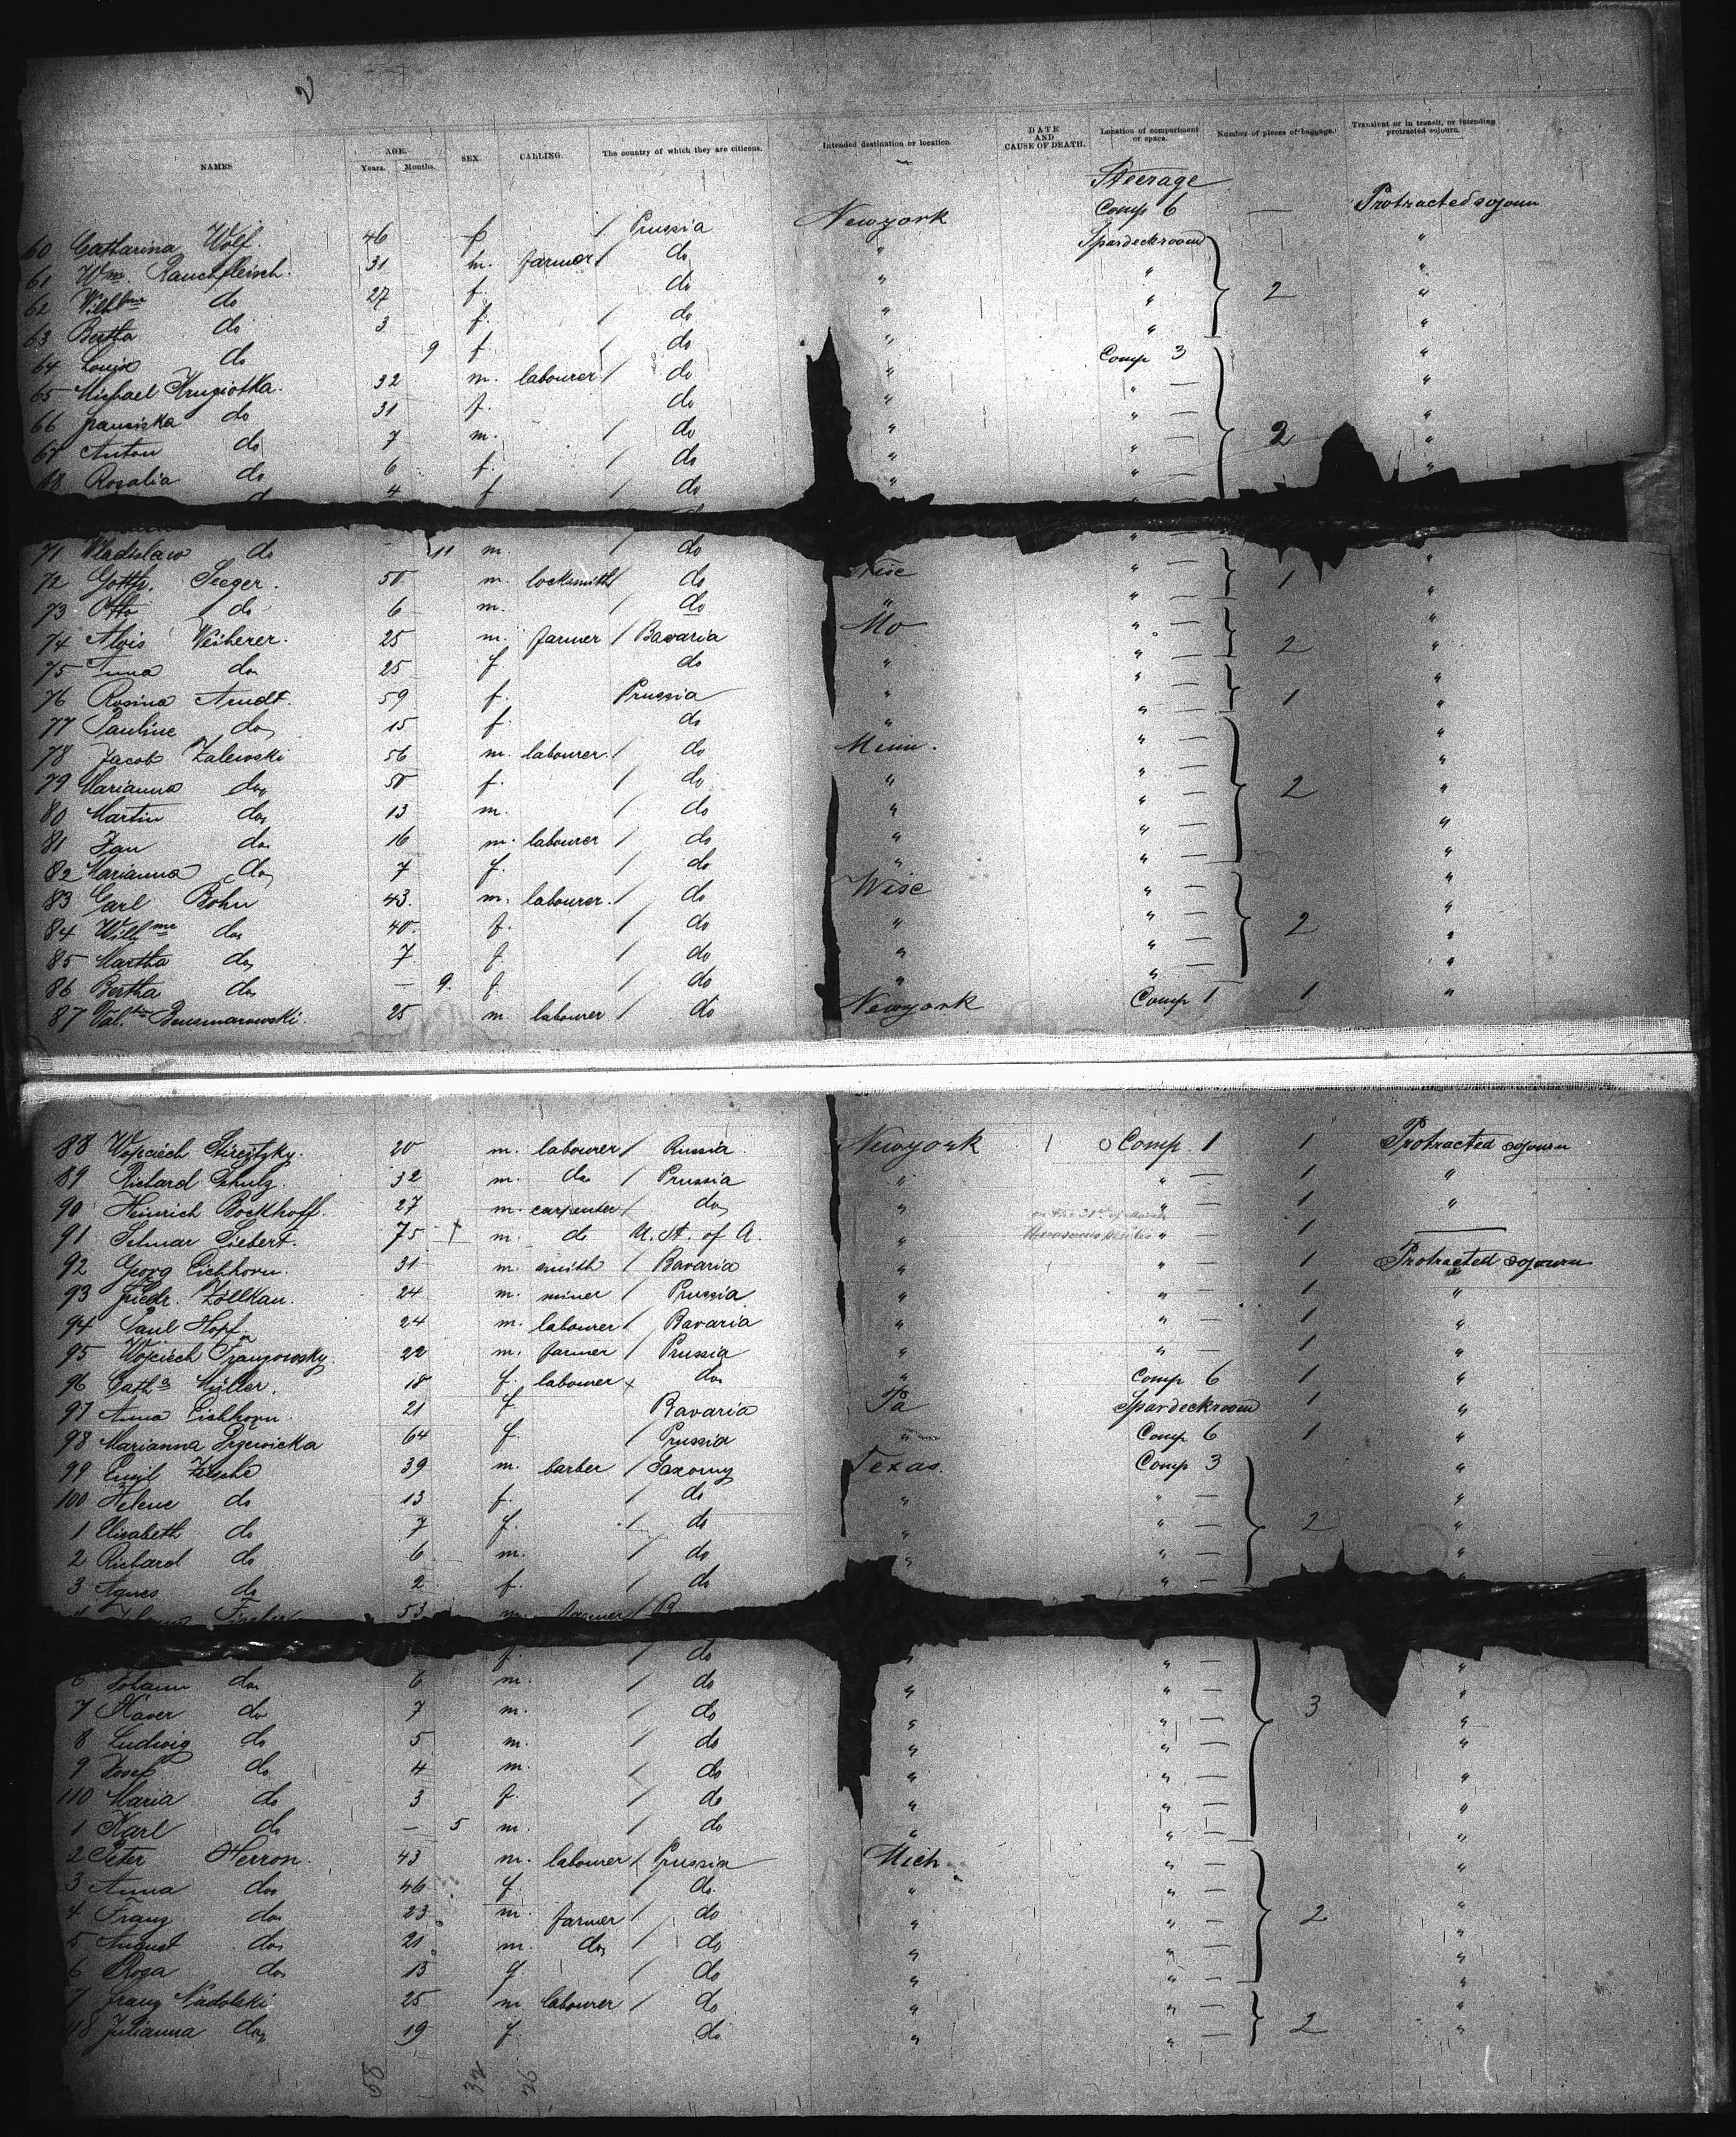 NAMES AGE. Years. Months. SEX. CALLING. The country of which they are citizens. Intended destination or location. DATE AND CAUSE OF DEATH. Location of compartment or space. Number of pieces of baggage. Transient or in transit, or intending protracted sojourn.
Steerage
60 Catharina Wolf. 46 f / Prussia Newyork Comp 6 — Protracted sojourn
61 Wm. Rauchfleisch. 31 m. farmer / do " Spardeckroom "
62 Wilhme do 27 f. do " " 2 "
63 Bertha do 3 f. / do " " "
64 Louise do 9 f. / do " " "
65 Michael 32 m. labourer / do " Comp 3 "
66 do 31 f. do " " — "
67 Anton do 7 m. / do " " — "
68 Rosalia do 6 f. / do " " — "
do 4 f / do " " —
71 Wladislaw do 11 m. / do " — "
72 Gottfr. Seeger. 50 m. locksmith / do Wisc " — 1 "
73 Otto do 6 m. / do " " — "
74 Alois Weiherer. 25 m. farmer / Bavaria Mo " — 2 "
75 Anna do 25 f. do " " — "
76 Rosina Arndt. 59 f. Prussia " " — 1 "
77 Pauline do 15 f. do " " — "
78 Jacob Zalewski 56 m. labourer / do Minn. " — "
79 Marianna do 50 f. / do " " — 2 "
80 Martin do 13 m. / do " " — "
81 Jan do 16 m. labourer / do " " — "
82 Marianna do 7 f. / do " " — "
83 Carl Bohn 43. m. labourer. / do Wisc " — "
84 Wilhme do 40. f. / do " " — 2 "
85 Martha do 7 f / do " " — "
86 Bertha do — 9. f / do " " — "
87 25 m labourer / do Newyork Comp 1 1 "
88 Wojciech 20 m. labourer / Russia Newyork 1 Comp. 1 1 Protracted sojourn
89 Richard Schulz. 32 m. do / Prussia " " — 1 "
90 Heinrich Bockhoff. 27 m. carpenter / do " " — 1 "
91 Selmar Siebert. 75 + m. do U. St. of A. " on the 31st of March " — 1 —
92 Georg Eichhorn. 31 m. smith / Bavaria " " — 1 Protracted sojourn
93 Friedr. Zöllkau. 24 m. miner / Prussia " " — 1 "
94 Paul Hopf 24 m. labourer / Bavaria " " — 1 "
95 Wojciech 22 m. farmer / Prussia " " — 1 "
96 Cath. Müller. 18 f. labourer x do " Comp 6 1 "
97 Anna Eichhorn. 21 f. Bavaria Pa Spardeckroom 1 "
98 Marianna 64 f. / Prussia " Comp 6 1 "
99 Emil 39 m. barber / Saxony Texas. Comp 3 "
100 Helene do 13 f. / do " " — "
1 Elisabeth do 7 f. / do " " — 2 "
2 Richard do 6 m. / do " " — "
3 Agnes do 2 f. / do " — "
Fischer 53 m. farmer /
f. / do " " — "
6 Johann do 6 m. / do " " — "
7 Xaver do 7 m. / do " " — 3 "
8 Ludwig do 5 m. / do " " — "
9 Josef do 4 m. / do " " — "
110 Maria do 3 f. / do " " — "
1 Karl do — 5 m. / do " " — "
2 Peter Herron. 43 m. labourer / Prussia Mich " — "
3 Anna do 46 f. / do " " — "
4 Franz do 23 m. farmer / do " " — 2 "
5 August do 21 m. do / do " " — "
6 Rosa do 13 f. / do " " — "
7 Franz Nadolski 25 m labourer / do " " — "
118 Julianna do 19 f. do " " — 2 "
58 32 26